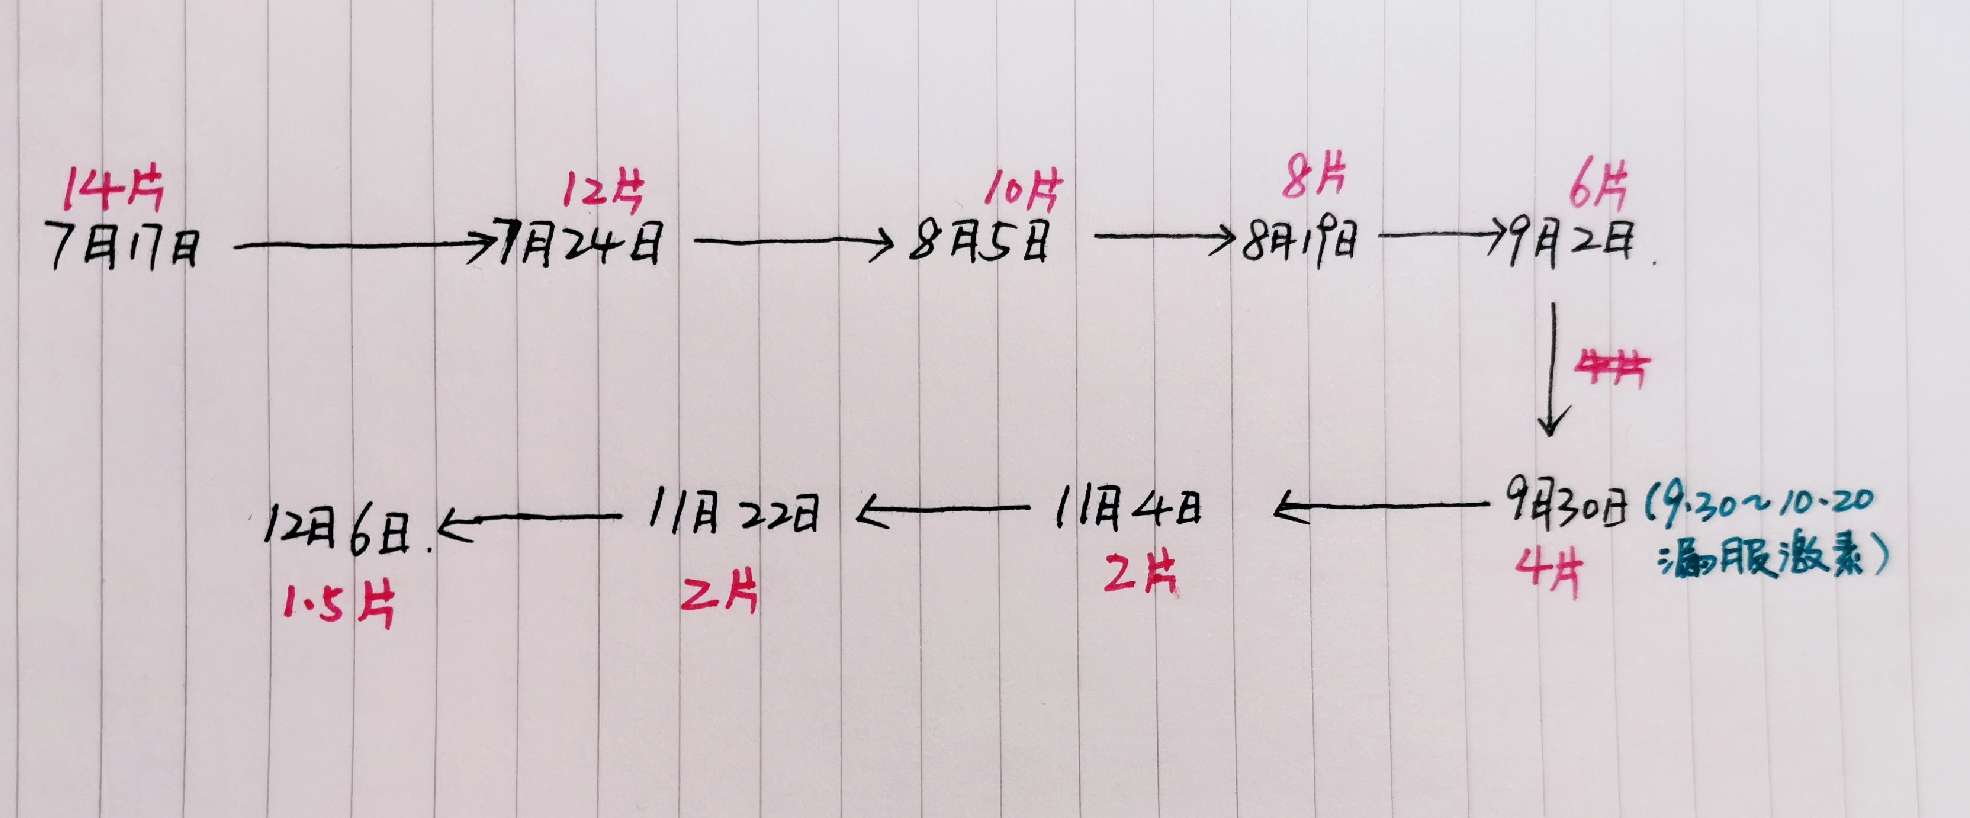 14片 12片 10片 8片 6片
7月17日 7月24日 8月5日 8月19日 9月2日.
4片
12月6日. 11月22日 11月4日 9月30日 (9.30~10.20
1.5片 2片 2片 4片 漏服激素)